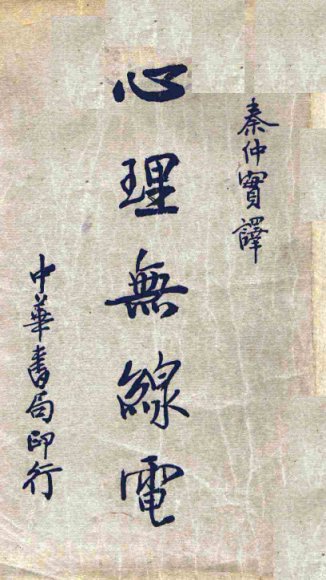 秦仲實譯
心理無線電
中華書局印行